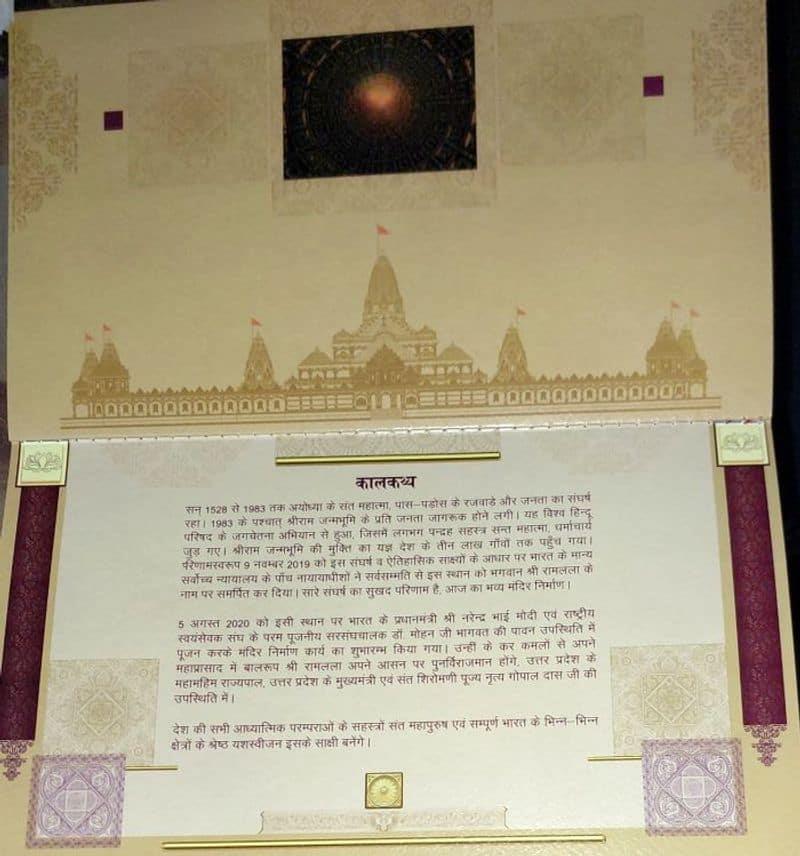 कालकथ्य
सन् 1528 से 1983 तक अयोध्या के संत महात्मा, पास-पडोस के रजवाडे और जनता का संघर्ष
रहा। 1983 के पश्चात् श्रीराम जन्मभूमि के प्रति जनता जागरूक होने लगी। यह विश्व हिन्दू
परिषद के जगचेतना अभियान से हुआ, जिसमें लगभग पन्द्रह सहस्त्र सन्त महात्मा, धर्माचार्य
जुड़ गए। श्रीराम जन्मभूमि की मुक्ति का यज्ञ देश के तीन लाख गाँवों तक पहुँच गया।
परिणामस्वरूप 9 नवम्बर 2019 को इस संघर्ष व ऐतिहासिक साक्ष्यों के आधार पर भारत के मान्य
सर्वोच्च न्यायालय के पाँच नायायाधीशों ने सर्वसम्मति से इस स्थान को भगवान श्री रामलला के
नाम पर समर्पित कर दिया। सारे संघर्ष का सुखद परिणाम है, आज का भव्य मंदिर निर्माण।
5 अगस्त 2020 को इसी स्थान पर भारत के प्रधानमंत्री श्री नरेन्द्र भाई मोदी एवं राष्ट्रीय
स्वयंसेवक संघ के परम पूजनीय सरसंघचालक डॉ. मोहन जी भागवत की पावन उपस्थिति में
पूजन करके मंदिर निर्माण कार्य का शुभारम्भ किया गया। उन्हीं के कर कमलों से अपने
महाप्रासाद में बालरूप श्री रामलला अपने आसन पर पुनर्विराजमान होंगे, उत्तर प्रदेश के
महामहिम राज्यपाल, उत्तर प्रदेश के मुख्यमंत्री एवं संत शिरोमणी पूज्य नृत्य गोपाल दास जी की
उपस्थिति में।
देश की सभी आध्यात्मिक परम्पराओं के सहस्त्रों संत महापुरुष एवं सम्पूर्ण भारत के भिन्न-भिन्न
क्षेत्रों के श्रेष्ठ यशस्वीजन इसके साक्षी बनेंगे।